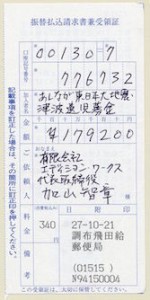 振替払込請求書兼受領証
00130=7
776732
あしなが東日本大地震・
津波遺児募金
¥179200
おなまえ
有限会社
エディション・ワークス
代表取締役
加山智章
料金
340
備考
27-10-21
調布飛田給
郵便局
(01515)
N94150004
記載事項を訂正した場合は、その箇所に訂正印を押してください。